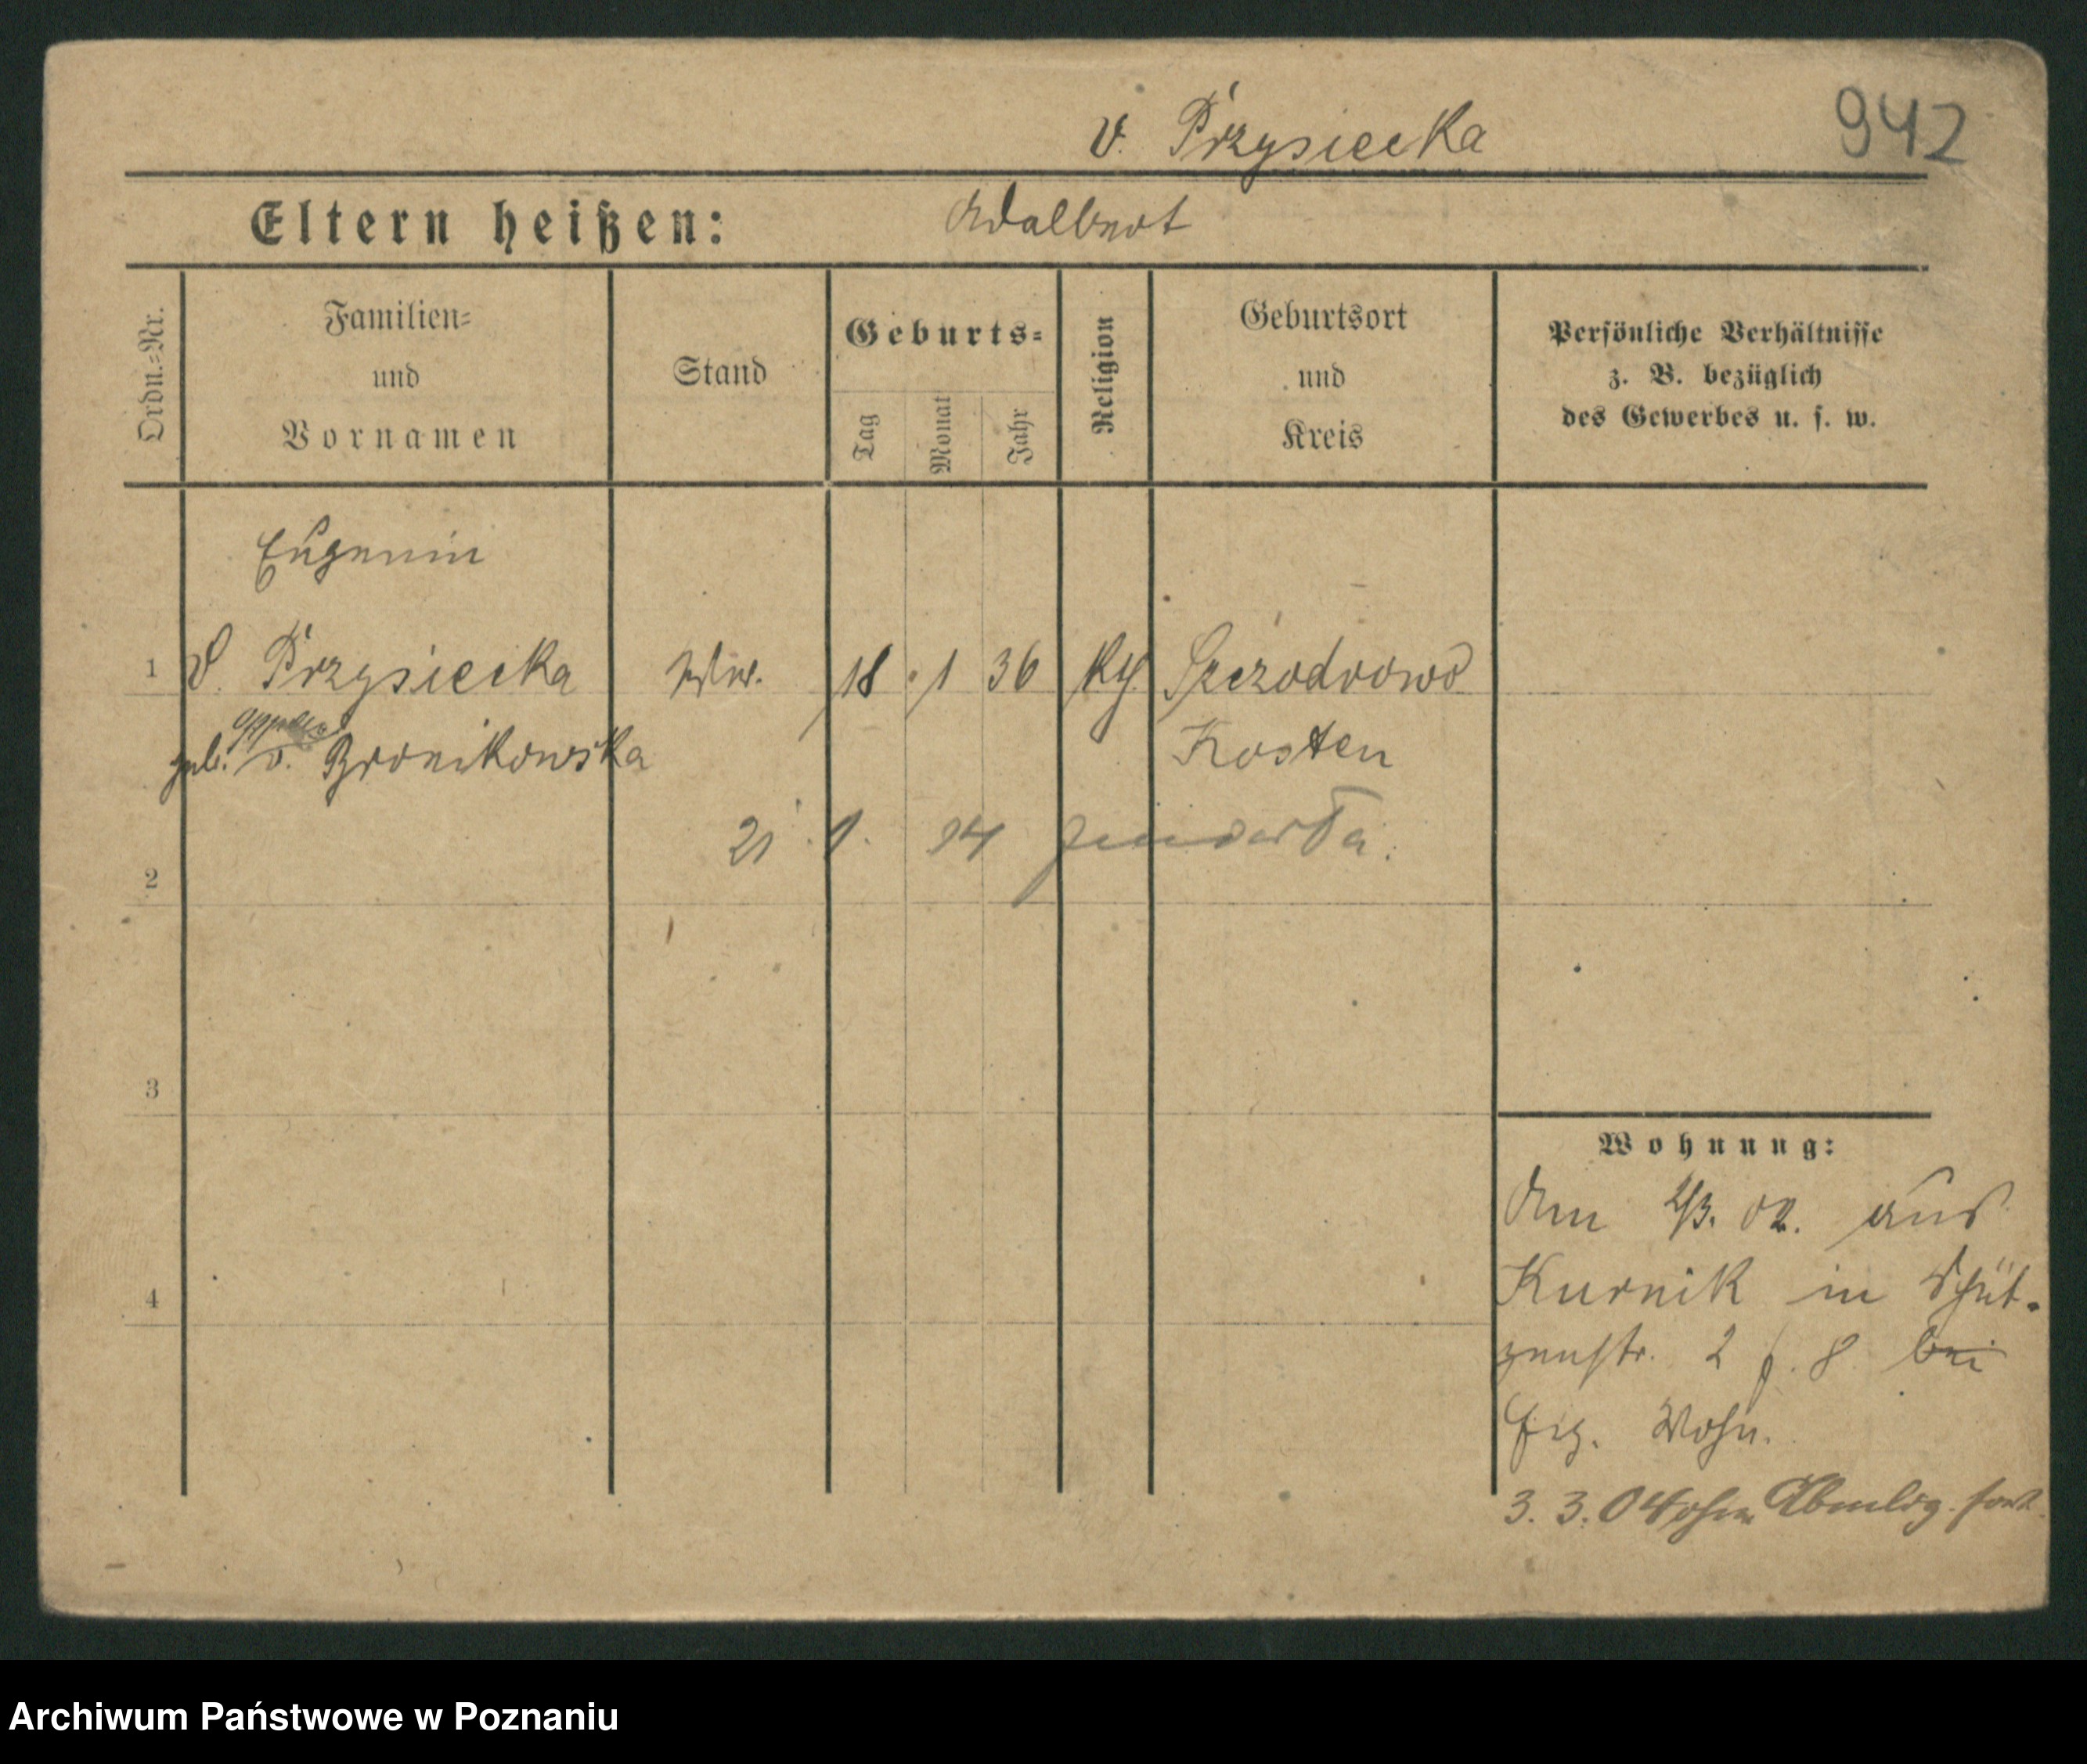 v. Przysiecka
942
Eltern heißen: Adalbert
Ordn.=Nr.
Familien=
und
Vornamen
Stand
Geburts=
Tag
Monat
Jahr
Religion
Geburtsort
und
Kreis
Persönliche Verhältnisse
z. B. bezüglich
des Gewerbes u. s. w.
Eugenie
1 v. Przysiecka Wwe. 18 . 1 36 kth Szczodrowo
geb. v. Bronikowska Kosten
21. 1. 14
2
3
4
Wohnung:
Am 2/3. 02. aus
Kurnik in Schüt-
zenstr. 2 f. 8 bei
Eig. Wohn.
3. 3. 04 ohne Abmldg. fort.
Archiwum Państwowe w Poznaniu